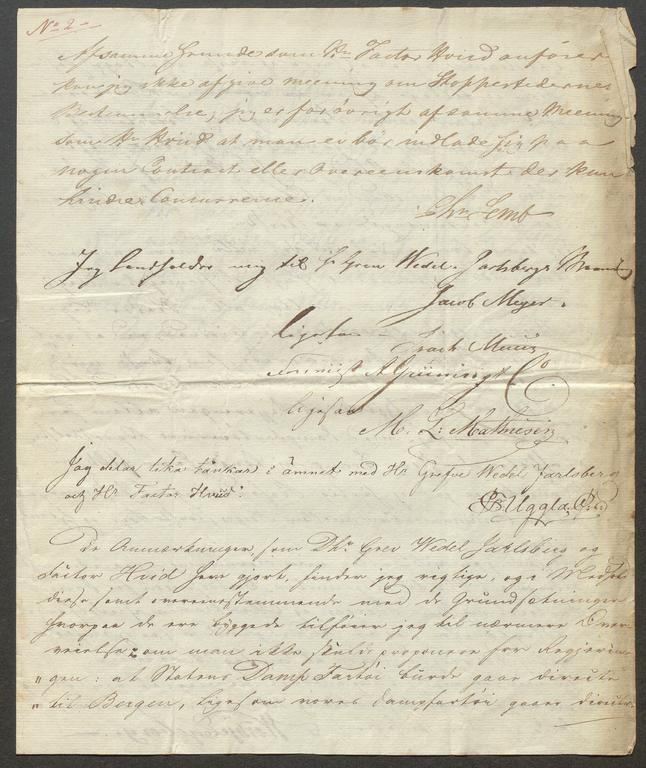 No 2
Af samme Grunde som Hr Factor Hvid anfører
kan jeg ikke afgive meening om Stoppestedernes
Bestemmelse, jeg er forøvrigt af samme Meening
som Hr Hvid at man ei bør indlade sig paa
nogen Contract eller Overeenskomst der kan
hindre Concurrence.
Chr Lemb
Jeg henholder mig til Hr Grev Wedel-Jarlsbergs
Jacob Meyer.
Ligesaa
Foreniigt A Grüning & Co
ligesaa
M. L: Mathiesen
Jag delar lika tankar i ämnet med Hr Grefve Wedel Jarlsberg
och Hr Factor Hvid.
Uggla
De Anmærkninger, som Dhr Grev Wedel Jarlsberg og
Factor Hvid have gjort, finder jeg rigtige, og i
disse samt overeensstemmende med de Grundsætninger
hvorpaa de ere byggede tilføier jeg til nærmere Over
veielse: om man ikke skulde proponere for Regjerin
" gen: at Statens Damp Fartøi burde gaae directe
" til Bergen, ligesom vores Dampfartøi gaaer directe